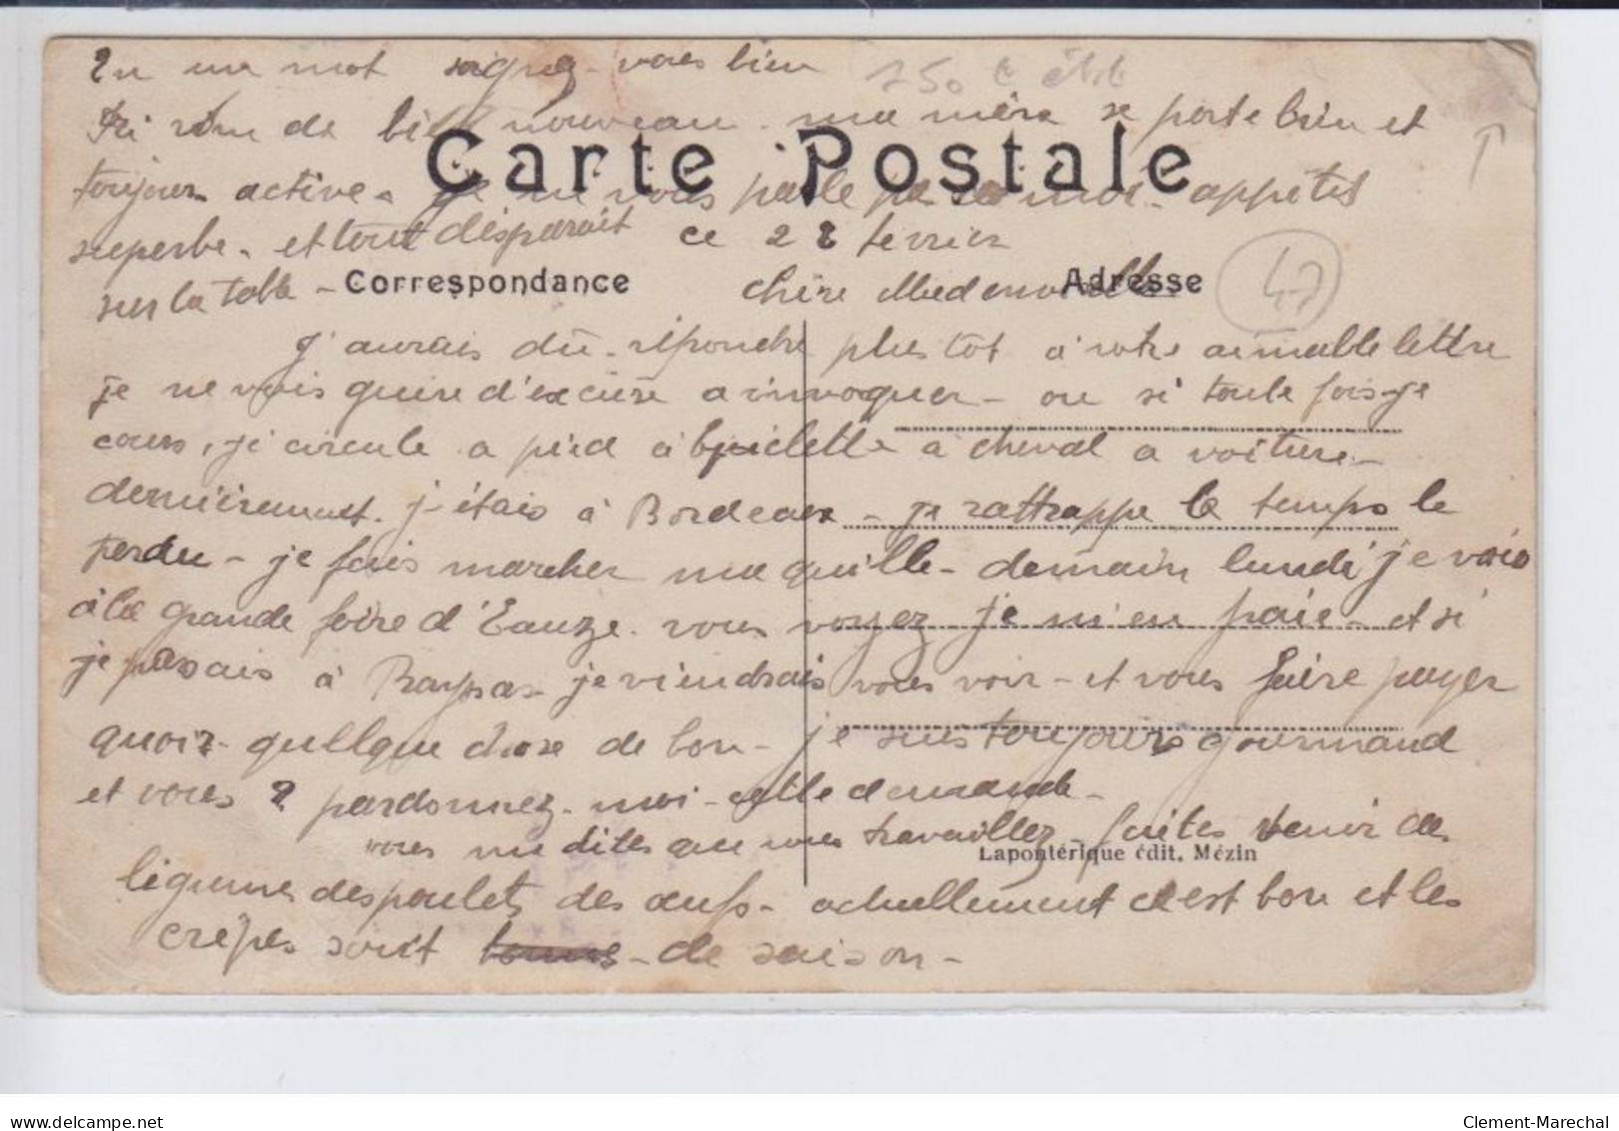 En un mot soignez-vous bien
750 € été
Ici rien de bien nouveau. ma mère se porte bien et
Carte Postale
toujours active. Je ne vous parle pas de moi. appétit
superbe. et tout disparait ce 28 fevrier
sur la table - Correspondance chère Mademoiselle Adresse 47
J'aurais dû répondre plus tôt à votre aimable lettre
je ne vois guère d'excuse a invoquer - ou si toute fois je
cours, je circule a pied à byciclette à cheval a voiture -
dernièrement. j'étais à Bordeaux - je rattrappe le temps le
perdu - je fais marcher ma quille - demain lundi je vais
à la grande foire d'Eauze. vous voyez je m'en paie - et si
je passais à je viendrais vous voir - et vous faire payer
quoi? - quellque chose de bon - je suis toujours gourmand
et vous ? pardonnez-moi cette demande -
vous me dites que vous travaillez - faites venir des
Lapontérique édit. Mézin
légumes des poulets des œufs - actuellement c'est bon et les
crêpes sont de saison -
Clement-Marechal
delcampe.net